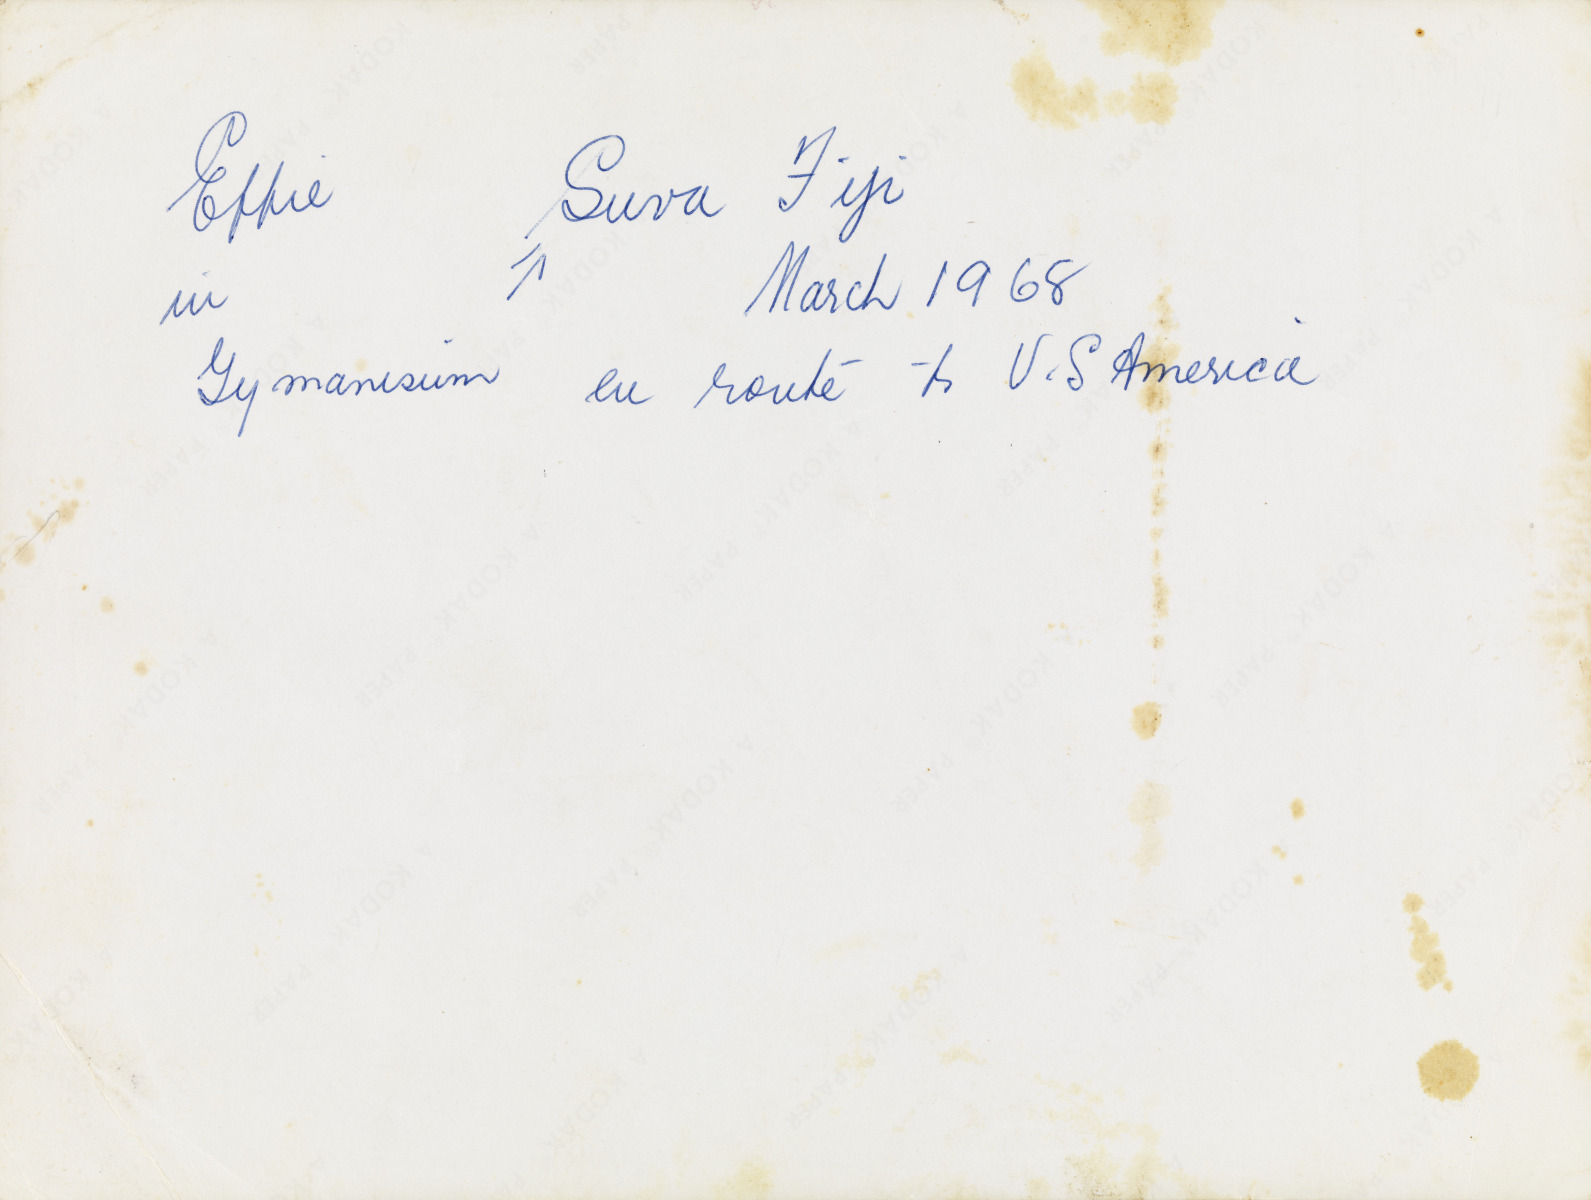 Effie Suva Fiji
in ↑ March 1968
Gymanisium en routé to U.S America
A KODAK PAPER